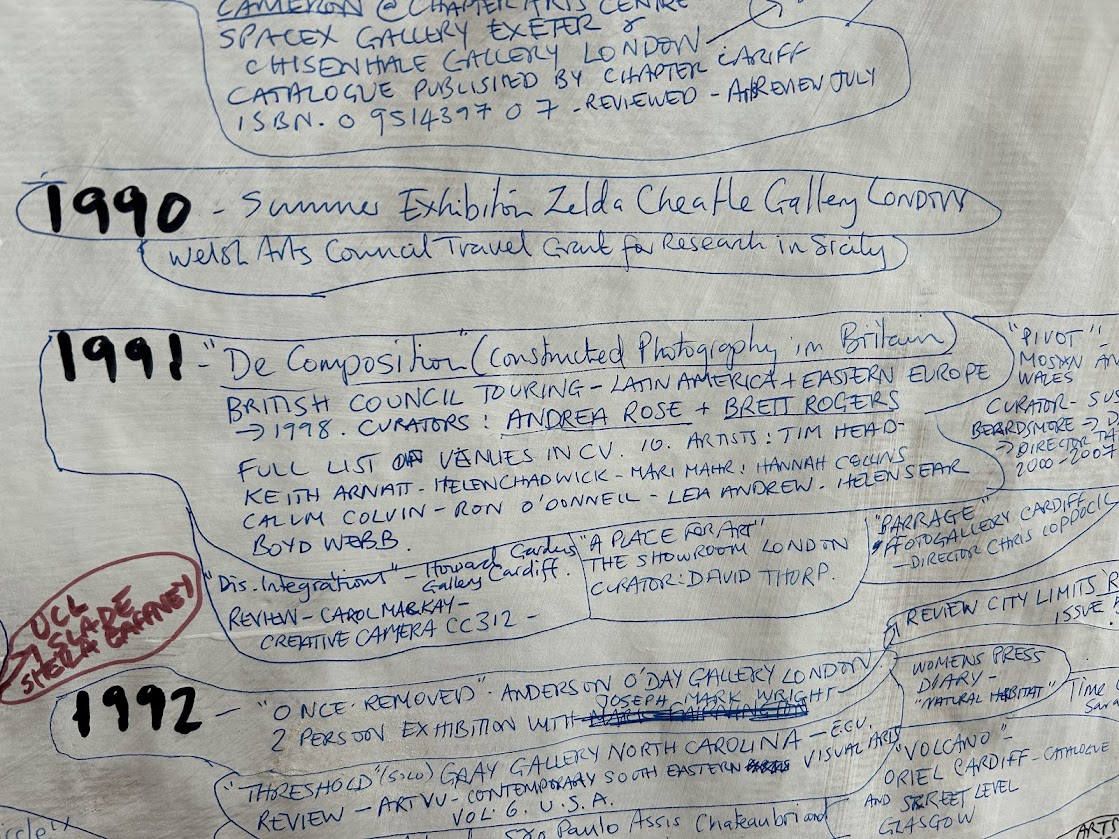 CAMERON @ CHAPTER ARTS CENTRE
SPACEX GALLERY EXETER &
CHISENHALE GALLERY LONDON
CATALOGUE PUBLISHED BY CHAPTER CARIFF
ISBN. 0 9514397 0 7 - REVIEWED - REVIEW JULY
1990 - Summer Exhibition Zelda Cheatle Gallery LONDON
Welsh Arts Council Travel Grant for Research in Sicily
1991 - "De Composition" (Constructed Photography in Britain)
BRITISH COUNCIL TOURING - LATIN AMERICA + EASTERN EUROPE
→ 1998. CURATORS: ANDREA ROSE + BRETT ROGERS
FULL LIST OF VENUES IN CV. 10. ARTISTS: TIM HEAD -
KEITH ARNATT - HELEN CHADWICK - MARI MAHR: HANNAH COLLINS
CALUM COLVIN - RON O'DONNELL - LEA ANDREW. HELEN SEAR
BOYD WEBB.
"PIVOT" -
MOSTYN
WALES
CURATOR - SUS
BEARDSMORE →
→ DIRECTOR
2000-2007
"Dis.Integrations" - Howard Gardens
Gallery Cardiff.
REVIEW - CAROL MACKAY -
CREATIVE CAMERA CC312 -
"A PLACE FOR ART"
THE SHOWROOM LONDON
CURATOR: DAVID THORP.
"BARRAGE"
FFOTOGALLERY CARDIFF
- DIRECTOR CHRIS COPPOCK
UCL
→ SLADE
SHEILA GAFFNEY
REVIEW CITY LIMITS
ISSUE
1992 - "ONCE REMOVED". ANDERSON O'DAY GALLERY LONDON
JOSEPH MARK WRIGHT
2 PERSON EXHIBITION WITH
WOMENS PRESS
DIARY -
"NATURAL HABITAT"
Time
"THRESHOLD" (SOLO) GRAY GALLERY NORTH CAROLINA - ECU.
REVIEW - ART VU - CONTEMPORARY SOUTH EASTERN VISUAL ARTS
VOL 6. U.S.A.
"VOLCANO" -
ORIEL CARDIFF - CATALOGUE
AND STREET LEVEL
GLASGOW
São Paulo Assis Chateaubriand
ART